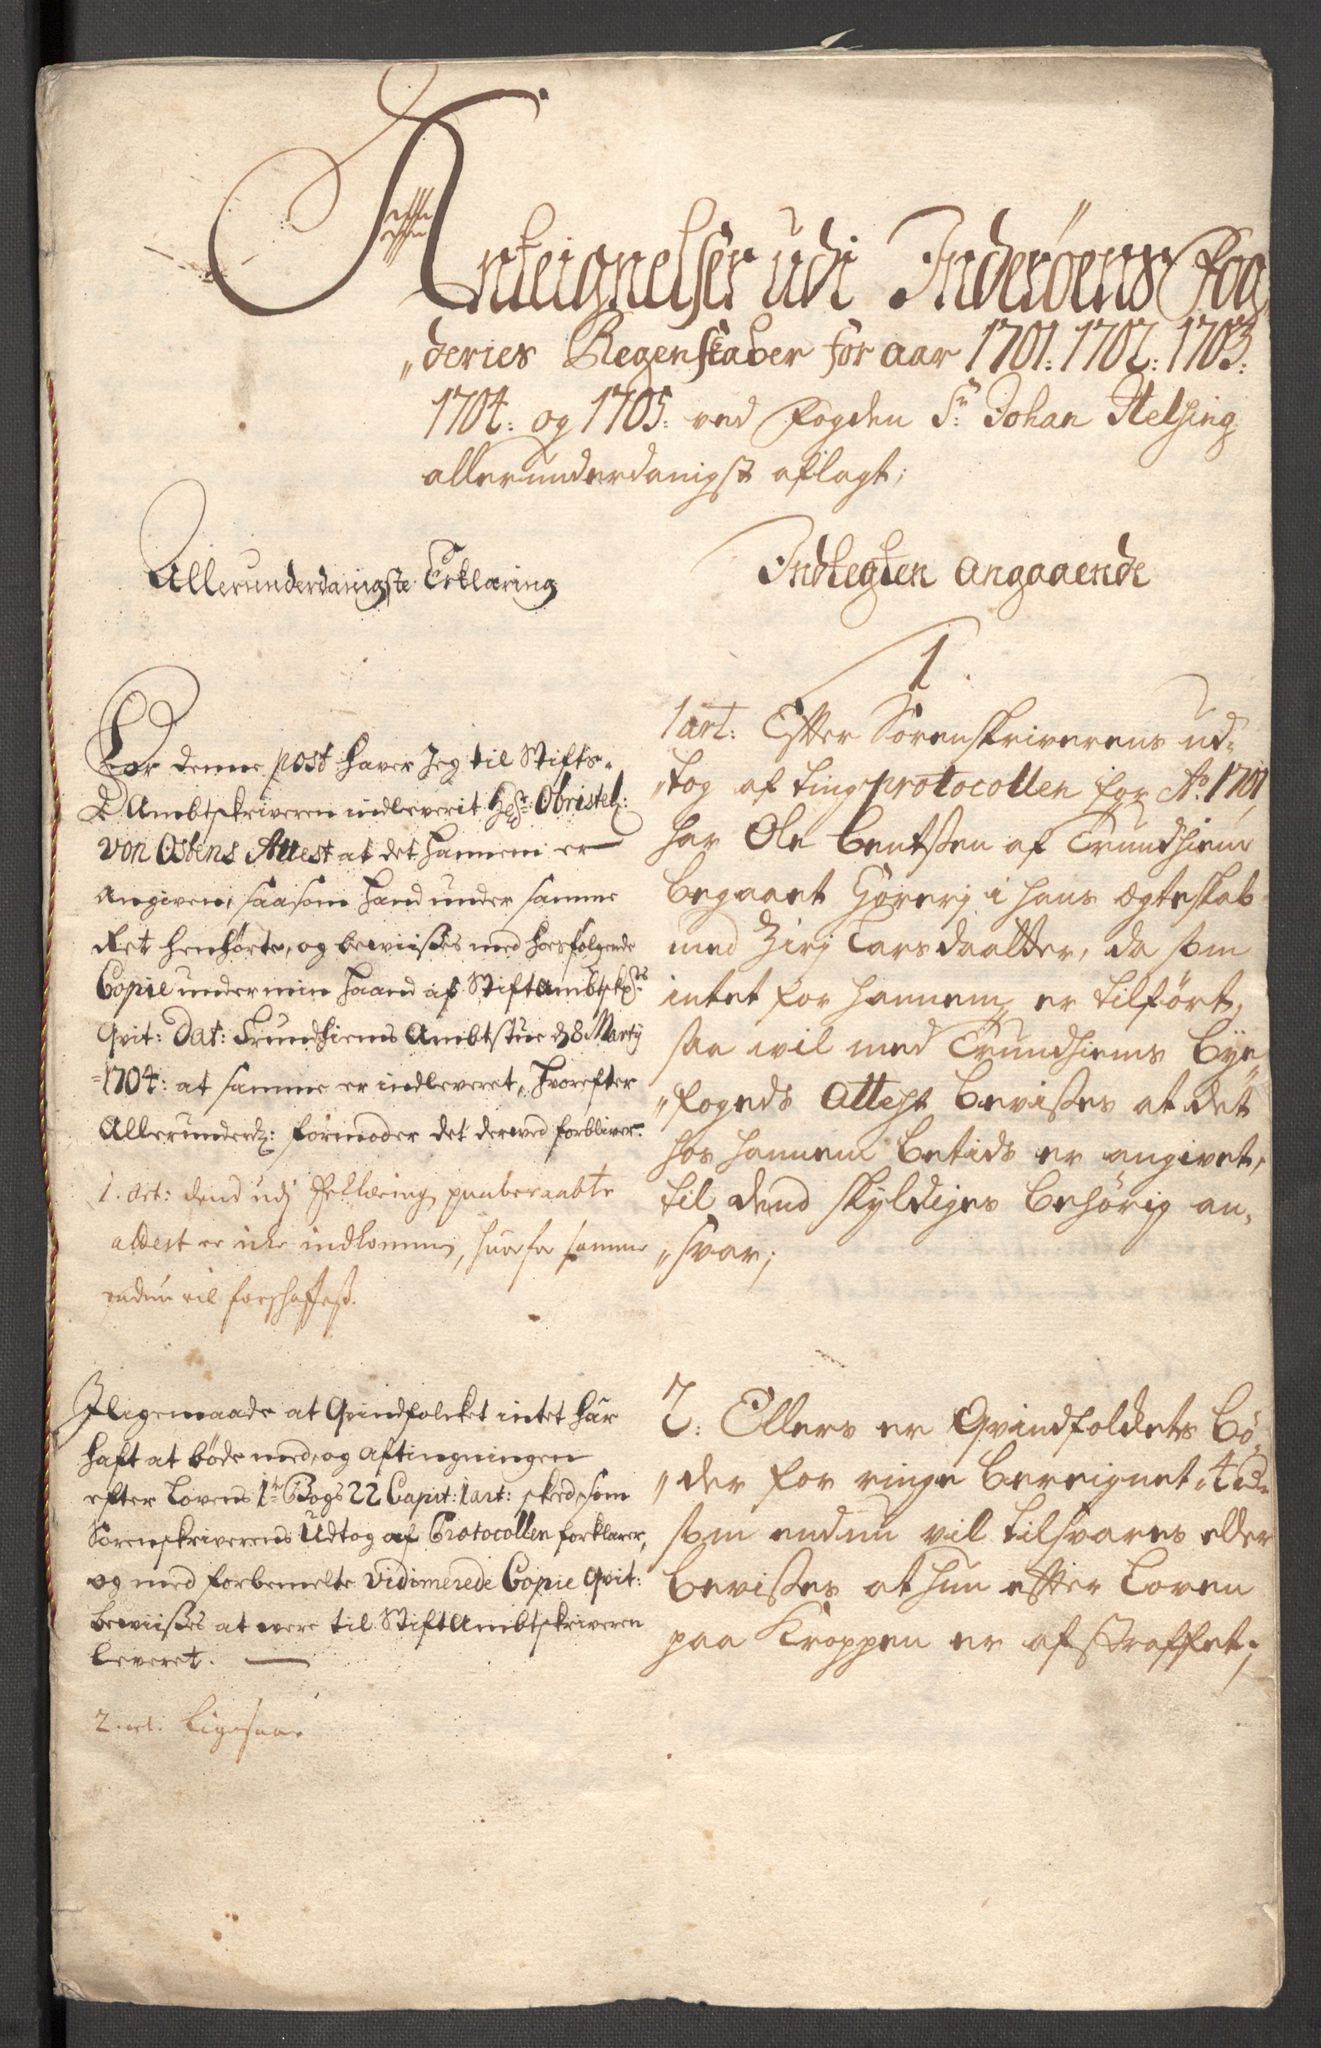 Anteignelser udi Inderöens Fog„
„deries Regenskaber for aar 1701: 1702: 1703:
1704: og 1705: ved Fogden Sr: Johan Helsing
allerunderdanigst aflagt;
Allerunderdanigste Erklæring
For denne post haver Jeg til Stifts-
Ambtskriveren indleverit Hr: Obristel:
von Ostens Attest at det hannem er
Angiven, saasom hand under samme
Ret henhörte, og beviises med hosfølgende
Copie under min haand af StiftAmbtskr:
Qvit: Dat: Trundhiems Ambtstue d 8 Marty
1704: at samme er indleveret, hvorefter
Allerunderd: formoder det derved forbliver.
1. art: dend udj Erklæring paaberaabte
attest er icke indkommen, huorfor samme
endnu vil forschaffest.
Iligemaade at Qvindfolcket intet har
haft at böde med, og aftingningen
efter Lovens 1te Bogs 22 Capit: 1 art: skeed, som
Sorenskriverens Udtog af Protocollen forklarer,
og med forbemelte Vidimerede Copie Qvit:
beviises at være til StiftAmbtskriveren
leveret.
2. art. Ligesaa
Indtegten Angaaende
1.
1 art: Efter Sorenskriverens ud„
„tog af tingprotocollen for Ao. 1701
har Ole Bentsen af Trundhiem
begaaet Horerj i hans ægteskab
med Zirj Larsdaatter, da som
intet for hannem er tilfört,
saa vil med Trundhiems Bye„
„fogeds Attest bevises at det
hos hannem betids er angivet,
til dend skyldiges behörig an„
„svar;
2. Ellers er Qvindfolckets bö„
„der for ringe bereignet
som endnu vil tilsvares eller
bevises at hun efter Loven
paa Kroppen er afstraffet;